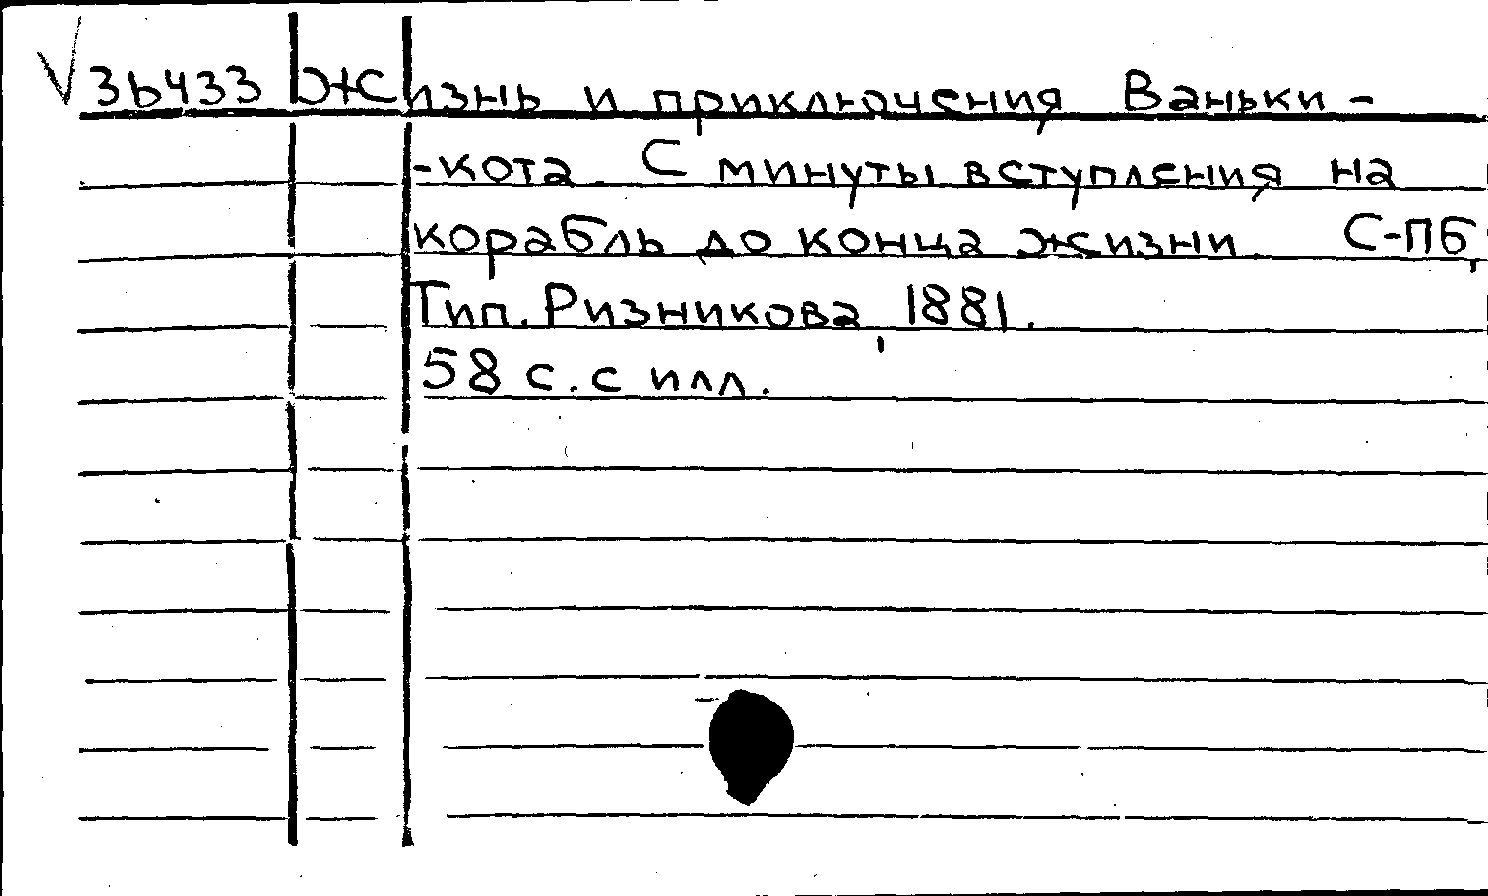 3Ь433 Жизнь и приключения Ваньки-
-кота. С минуты вступления на
корабль до конца жизни. С-ПБ,
Тип. Ризникова, 1881.
58 с. с илл.